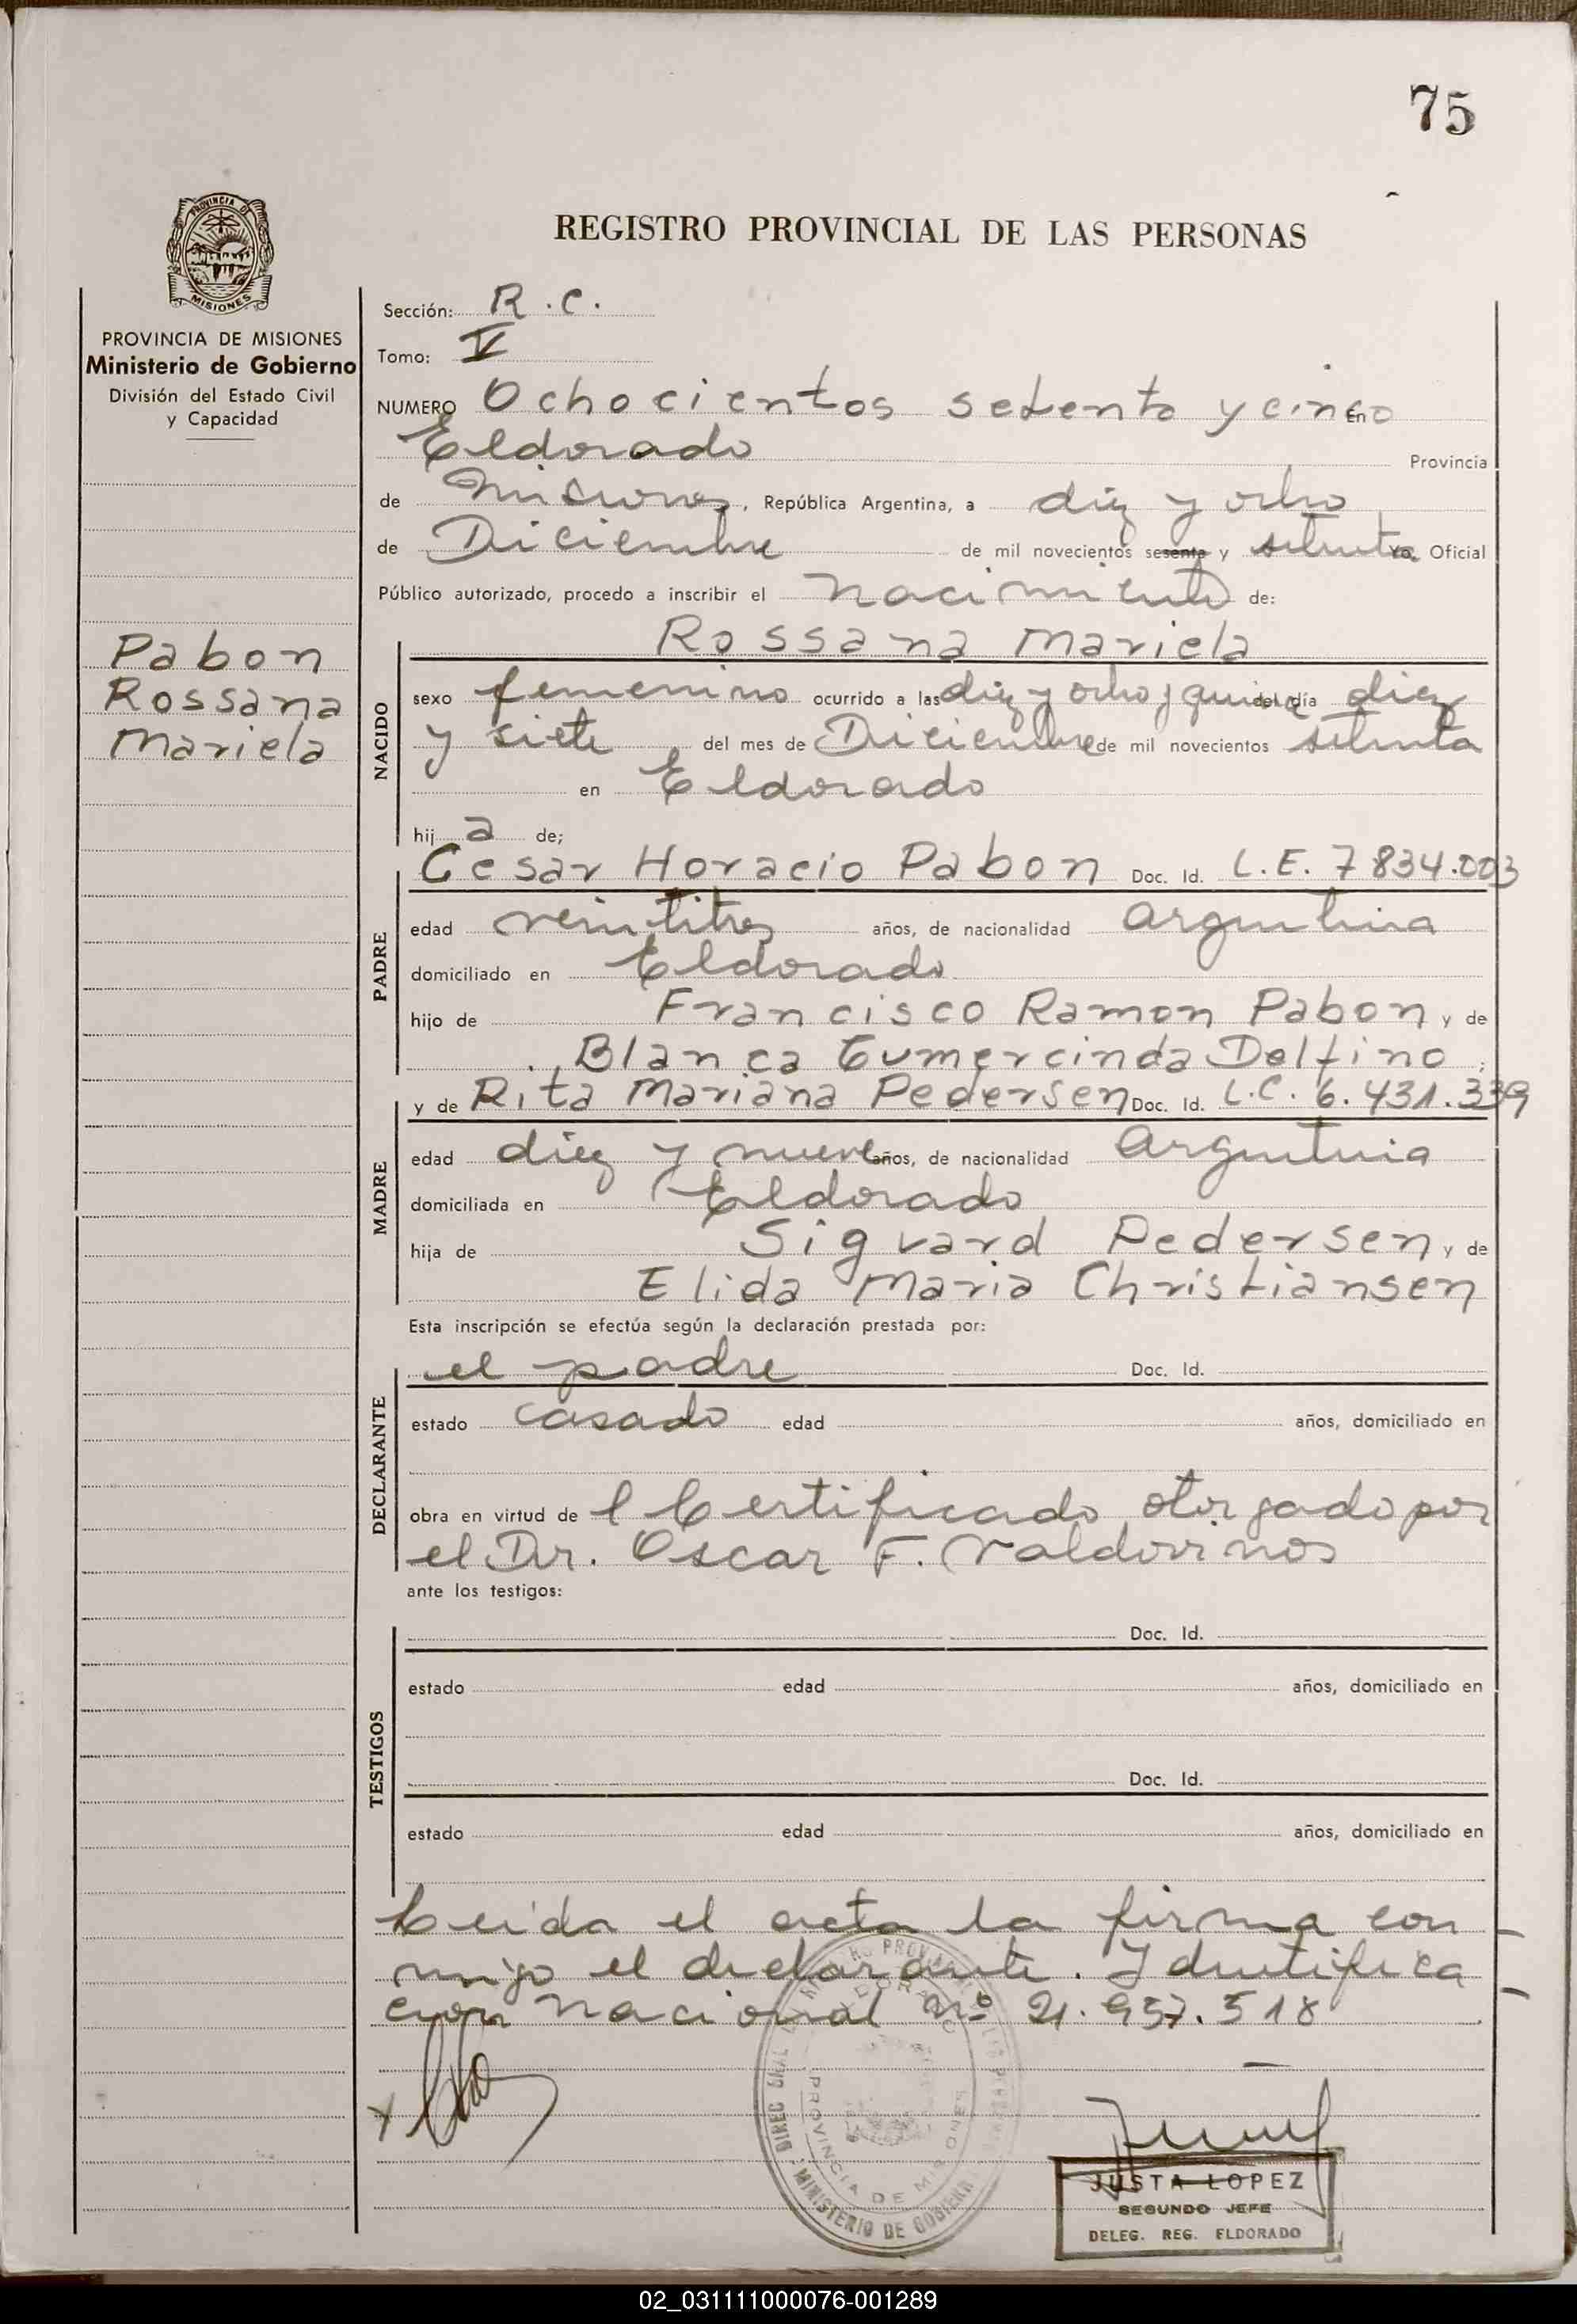 75
PROVINCIA DE
MISIONES
REGISTRO PROVINCIAL DE LAS PERSONAS
PROVINCIA DE MISIONES
Ministerio de Gobierno
División del Estado Civil
y Capacidad
Pabon
Rossana
Mariela
Sección: R.C.
Tomo: V
NUMERO Ochocientos setenta y cinco En
Eldorado Provincia
de Misiones, República Argentina, a diez y ocho
de Diciembre de mil novecientos sesenta y setenta Yo, Oficial
Público autorizado, procedo a inscribir el nacimiento de:
Rossana Mariela
NACIDO
sexo femenino ocurrido a las diez y ocho y quince del día diez
y siete del mes de Diciembre de mil novecientos setenta
en Eldorado
hij a de;
Cesar Horacio Pabon Doc. Id. L.E. 7834.003
PADRE
edad veintitres años, de nacionalidad argentina
domiciliado en Eldorado
hijo de Francisco Ramon Pabon y de
Blanca Gumercinda Delfino ;
y de Rita Mariana Pedersen Doc. Id. L.C. 6.431.339
MADRE
edad diez y nueve años, de nacionalidad argentina
domiciliada en Eldorado
hija de Sigvard Pedersen y de
Elida Maria Christiansen
Esta inscripción se efectúa según la declaración prestada por:
DECLARANTE
el padre Doc. Id.
estado casado edad años, domiciliado en
obra en virtud de l Certificado otorgado por
el Dr. Oscar F. Valdovinos
ante los testigos:
TESTIGOS
Doc. Id.
estado edad años, domiciliado en
Doc. Id.
estado edad años, domiciliado en
Leida el acta la firma con
migo el declarante. Identifica
cion Nacional Nº 21.937.518
PROVINCIA DE MISIONES
MINISTERIO DE GOBIERNO
JUSTA LOPEZ
SEGUNDO JEFE
DELEG. REG. ELDORADO
02_031111000076-001289